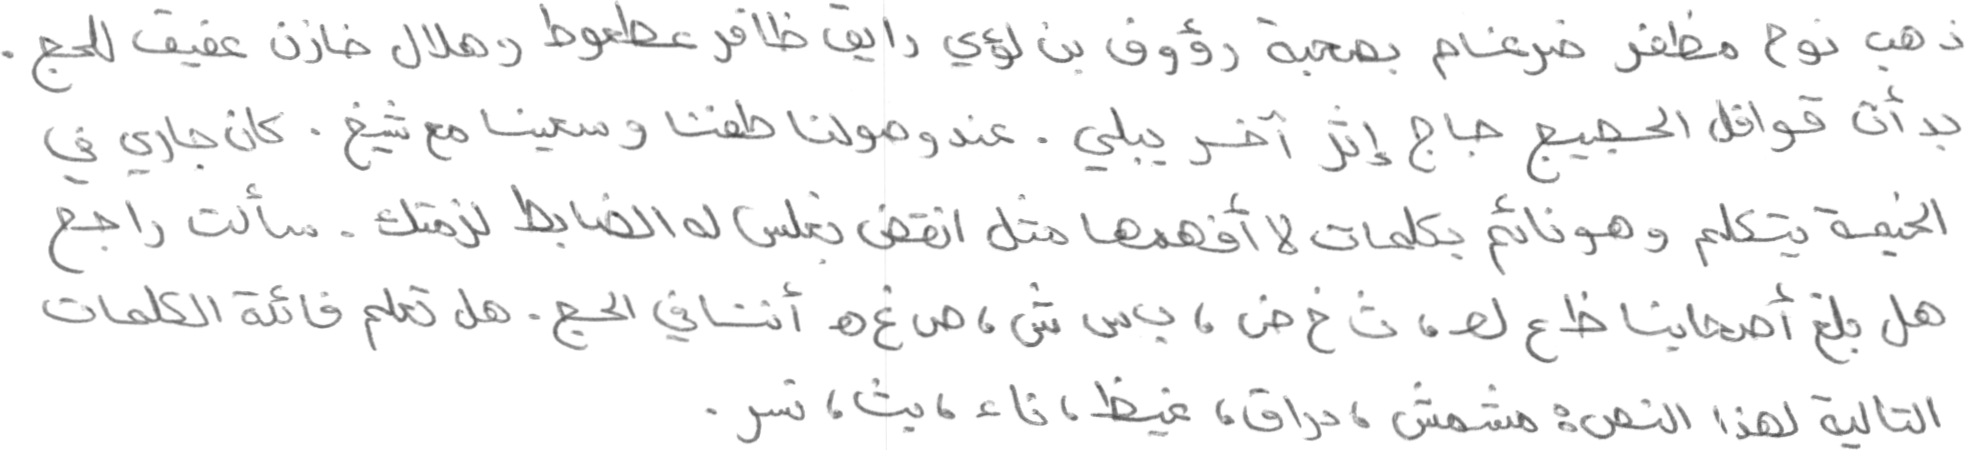 ذهب نوح مظفر ضرغام بصحبة رؤوف بن لؤي رايق ظافر عطعوط وهلال خازن عفيف للحج .
بدأت قوافل الحجيج حاج إثر آخر يبلي . عند وصولنا طفنا وسعينا مع شيخ . كان جاري في
الخيمة يتكلم وهو نائم بكلمات لا أفهمها مثل انقض بغلس له الضابط لزمتك . سألت راجح
هل بلغ أصحابنا ظ ع ط ، ث خ ض ، ب س ش ، ص غ ه أننا في الحج . هل تعلم فائدة الكلمات
التالية لهذا النص : مشمش ، دراق ، غيظ ، فاء ، يث ، نسر .